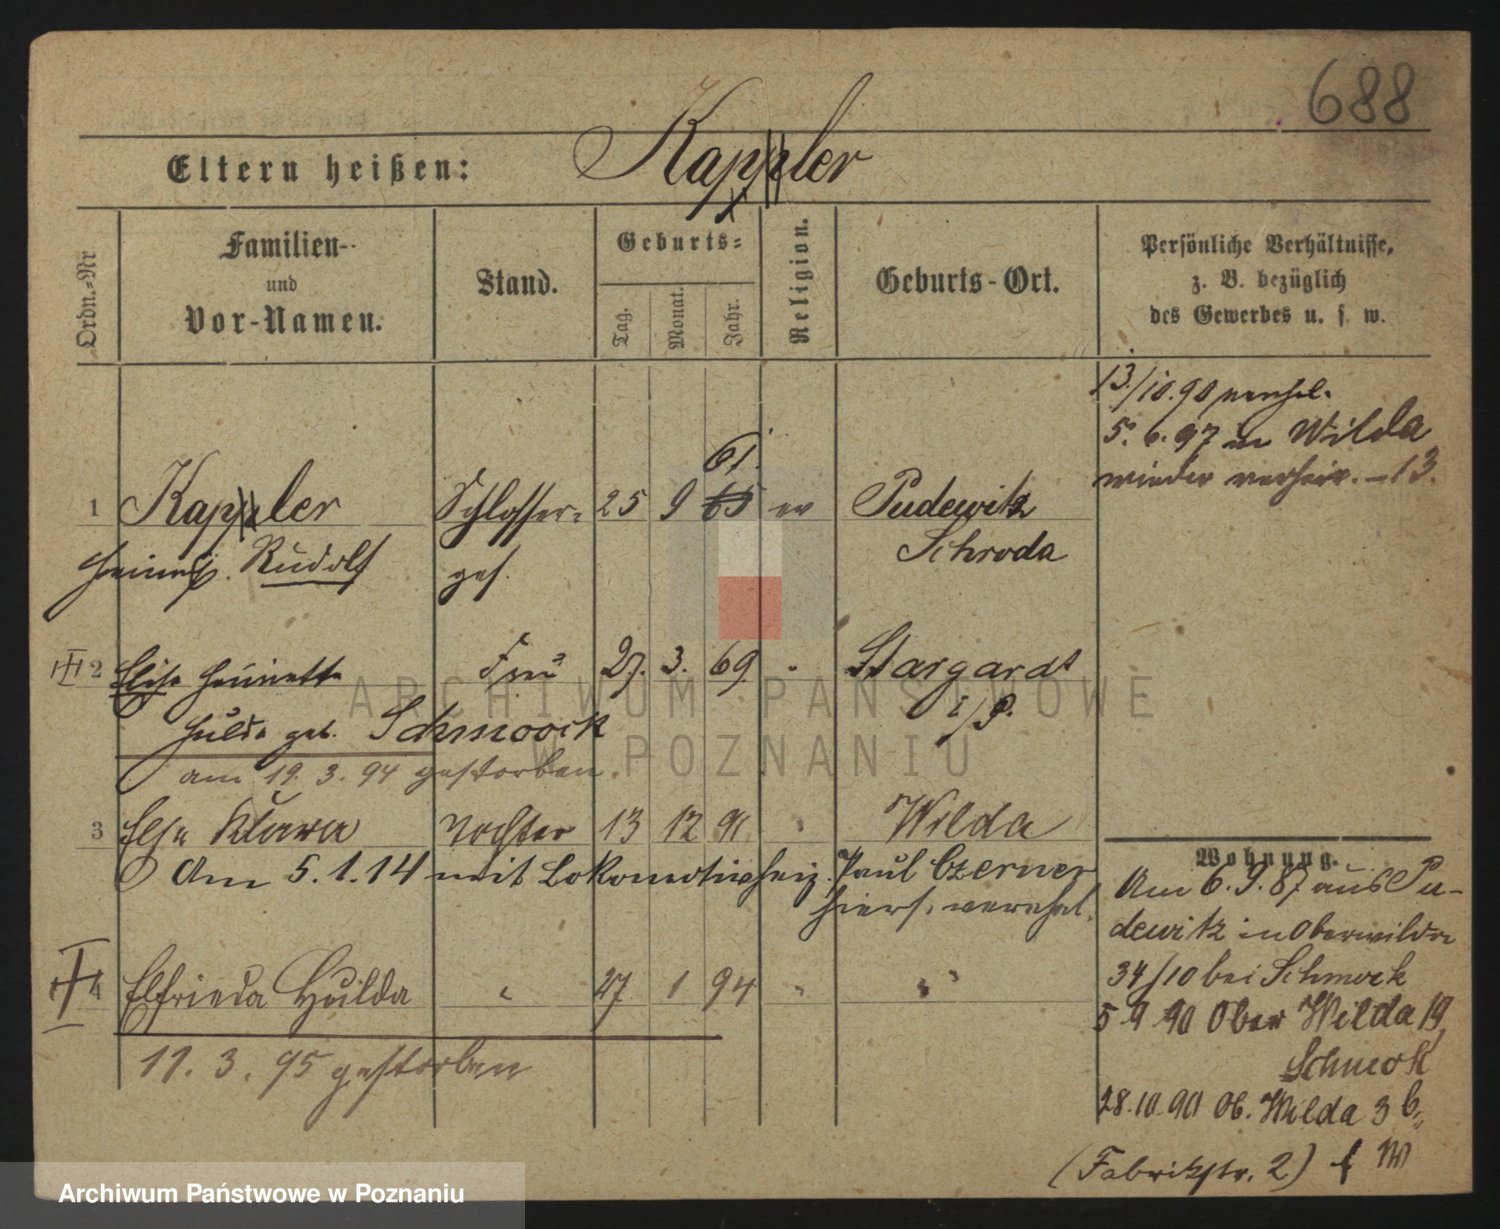 688
Eltern heißen: Kappler
Ordn.-Nr
Familien-
und
Vor-Namen.
Stand.
Geburts-
Tag.
Monat.
Jahr.
Religion.
Geburts-Ort.
Persönliche Verhältnisse,
z. B. bezüglich
des Gewerbes u. s. w.
13./10.90 verehel.
5. 6. 97 in Wilda
wieder verheir. - 13.
61.
1 Kappler Schlosser- 25 9 65 ev Pudewitz
Heinr. Rudolf ges. Schroda
2 Elise Henriette Frau 27. 3. 69. " Stargard
Hulda geb. Schmoock i/P.
am 19. 3. 94 gestorben.
3 Elsa Klara Tochter 13 12 91 " Wilda
Am 5.1.14 mit Lokomotivheiz. Paul Czerner
hiers. verehel.
4 Elfrieda Hulda " 27 1 94 " "
11. 3. 95 gestorben
Wohnung.
Am 6. 9. 87 aus Pu-
dewitz in Oberwilda
34/10 bei Schmock
5 9 90 Ober Wilda 19,
Schmock
28.10.90 Ob. Wilda 3 b,
(Fabrikstr. 2)
ARCHIWUM PAŃSTWOWE
W POZNANIU
Archiwum Państwowe w Poznaniu